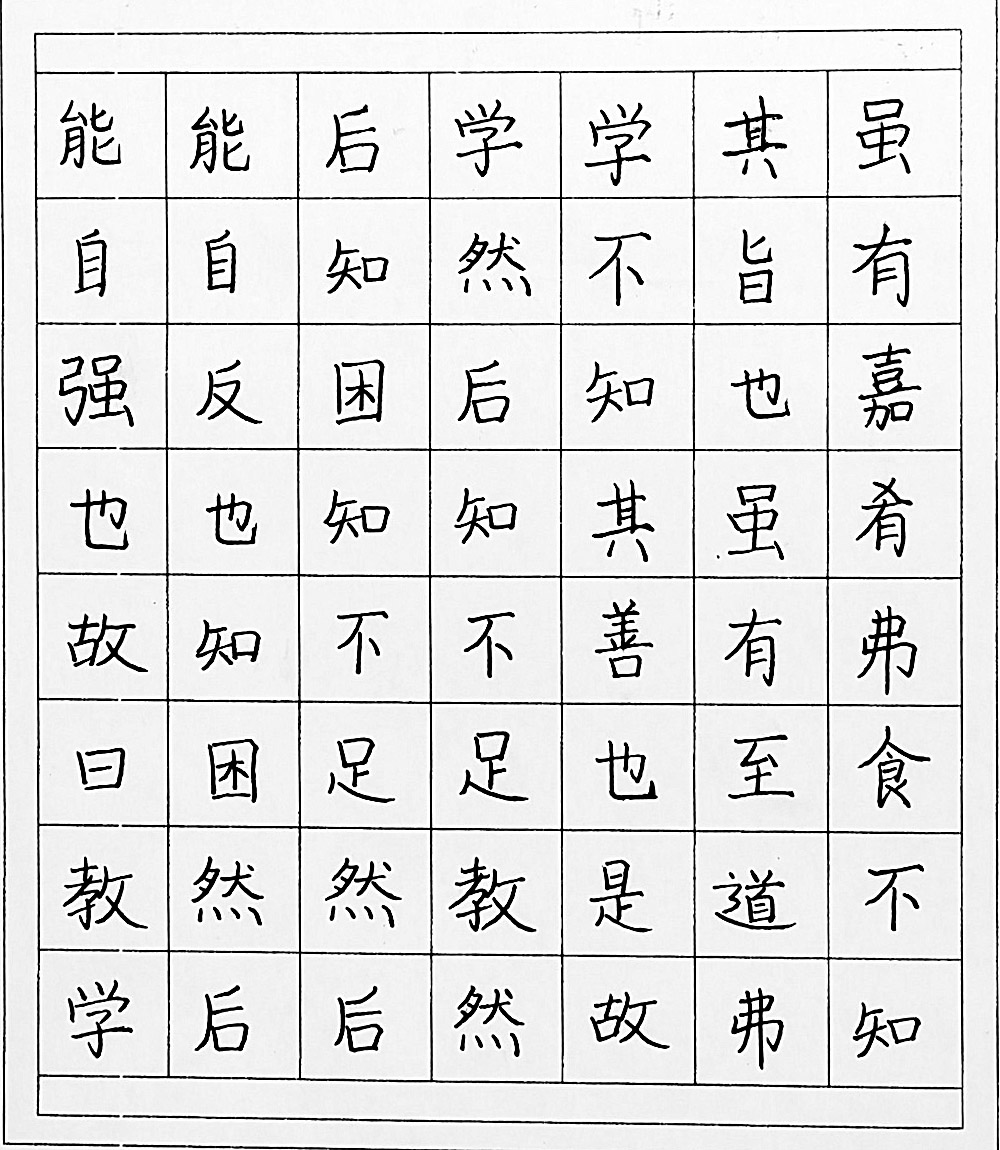 虽有嘉肴弗食不知
其旨也虽有至道弗
学不知其善也是故
学然后知不足教然
后知困知不足然后
能自反也知困然后
能自强也故曰教学